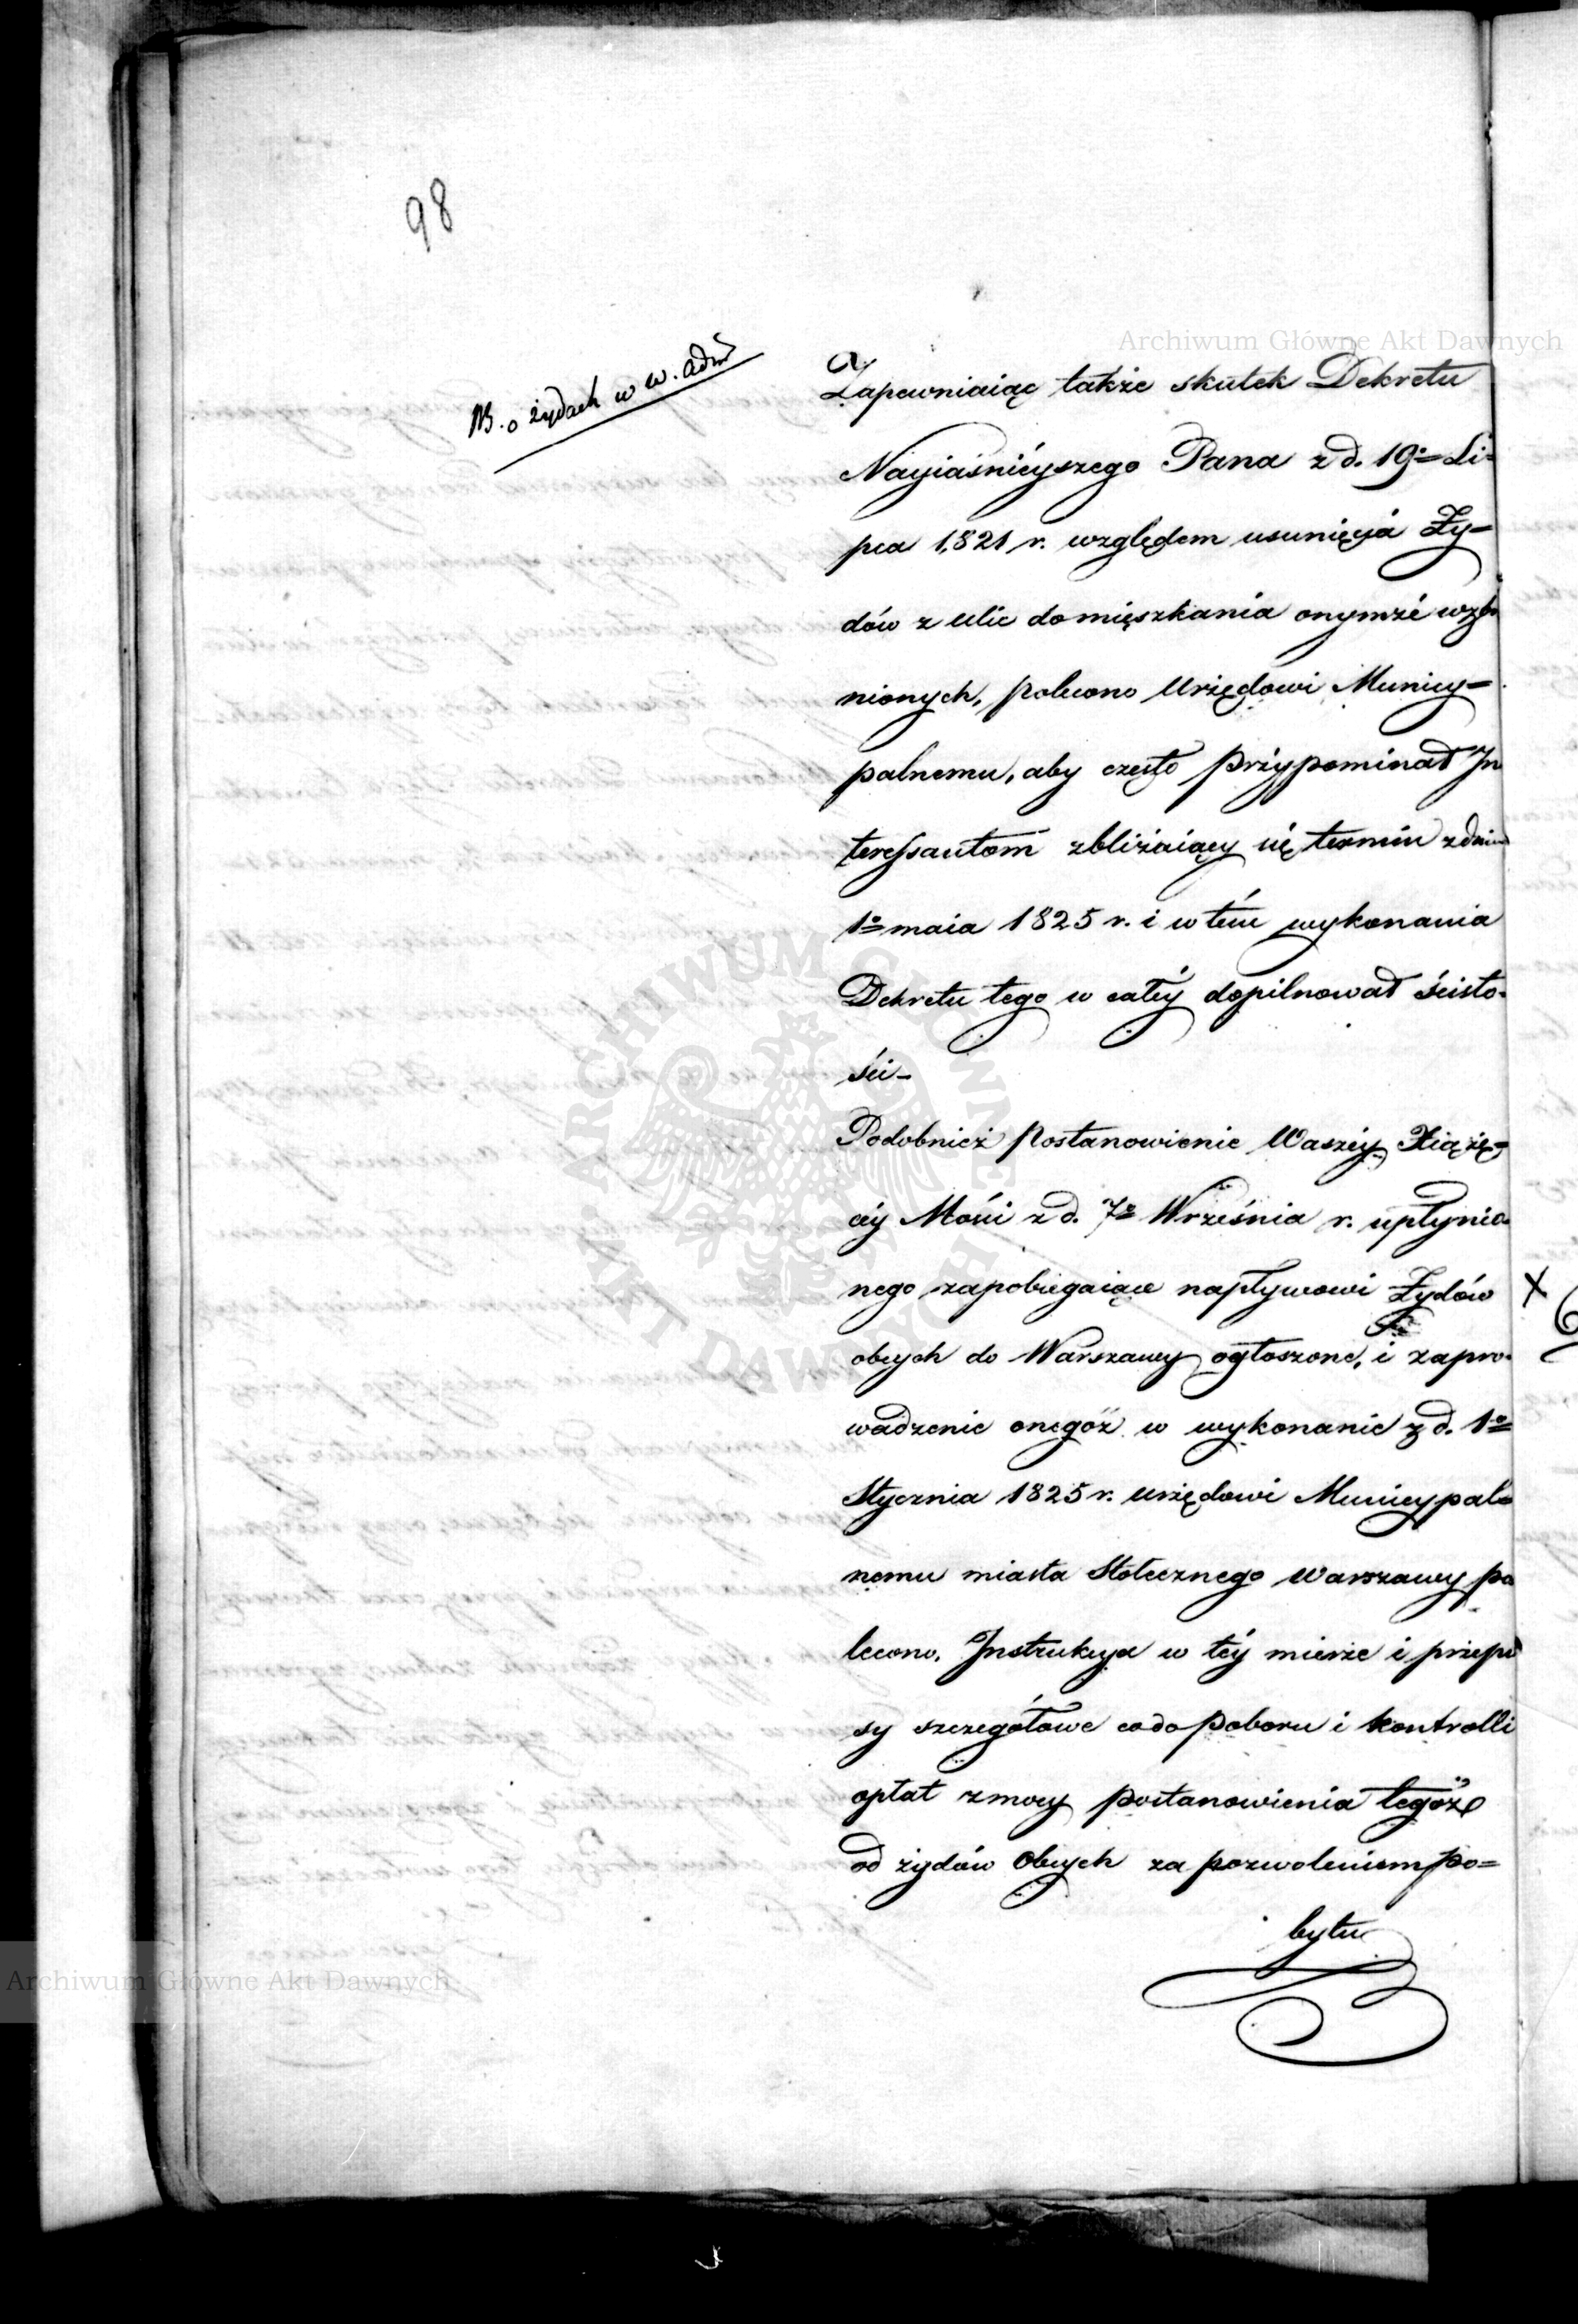 98
NB. o żydach w w. adm
Archiwum Główne Akt Dawnych
Zapewniaiąc także skutek Dekretu
Nayiaśnieyszego Pana z d. 19º Li=
pca 1,821 r. względem usunięcia Ży=
dów z ulic do mięszkania onymże wzbro
nionych, polecono Urzędowi Municy=
palnemu, aby często przypominał In
teressantom zbliżaiący się termin z dniem
1º maia 1825 r. i w tém wykonania
Dekretu tego w całéy dopilnował ścisło-
ści–
Podobnież Postanowienie Waszéy Xiążę=
céy Mości z d. 7º Września r. upłynio-
nego zapobiegaiące napływowi Żydów
obcych do Warszawy ogłoszone, i zapro-
wadzenie onegóż w wykonanie z d. 1º
Stycznia 1825 r. urzędowi Municypal=
nemu miasta Stołecznego Warszawy po
lecono. Instrukcya w téy mierze i przepi
sy szczegółowe co do poboru i kontrolli
opłat z mocy postanowienia tegóż
od żydów obcych za pozwoleniem po=
bytu
ARCHIWUM GŁÓWNE AKT DAWNYCH
Archiwum Główne Akt Dawnych